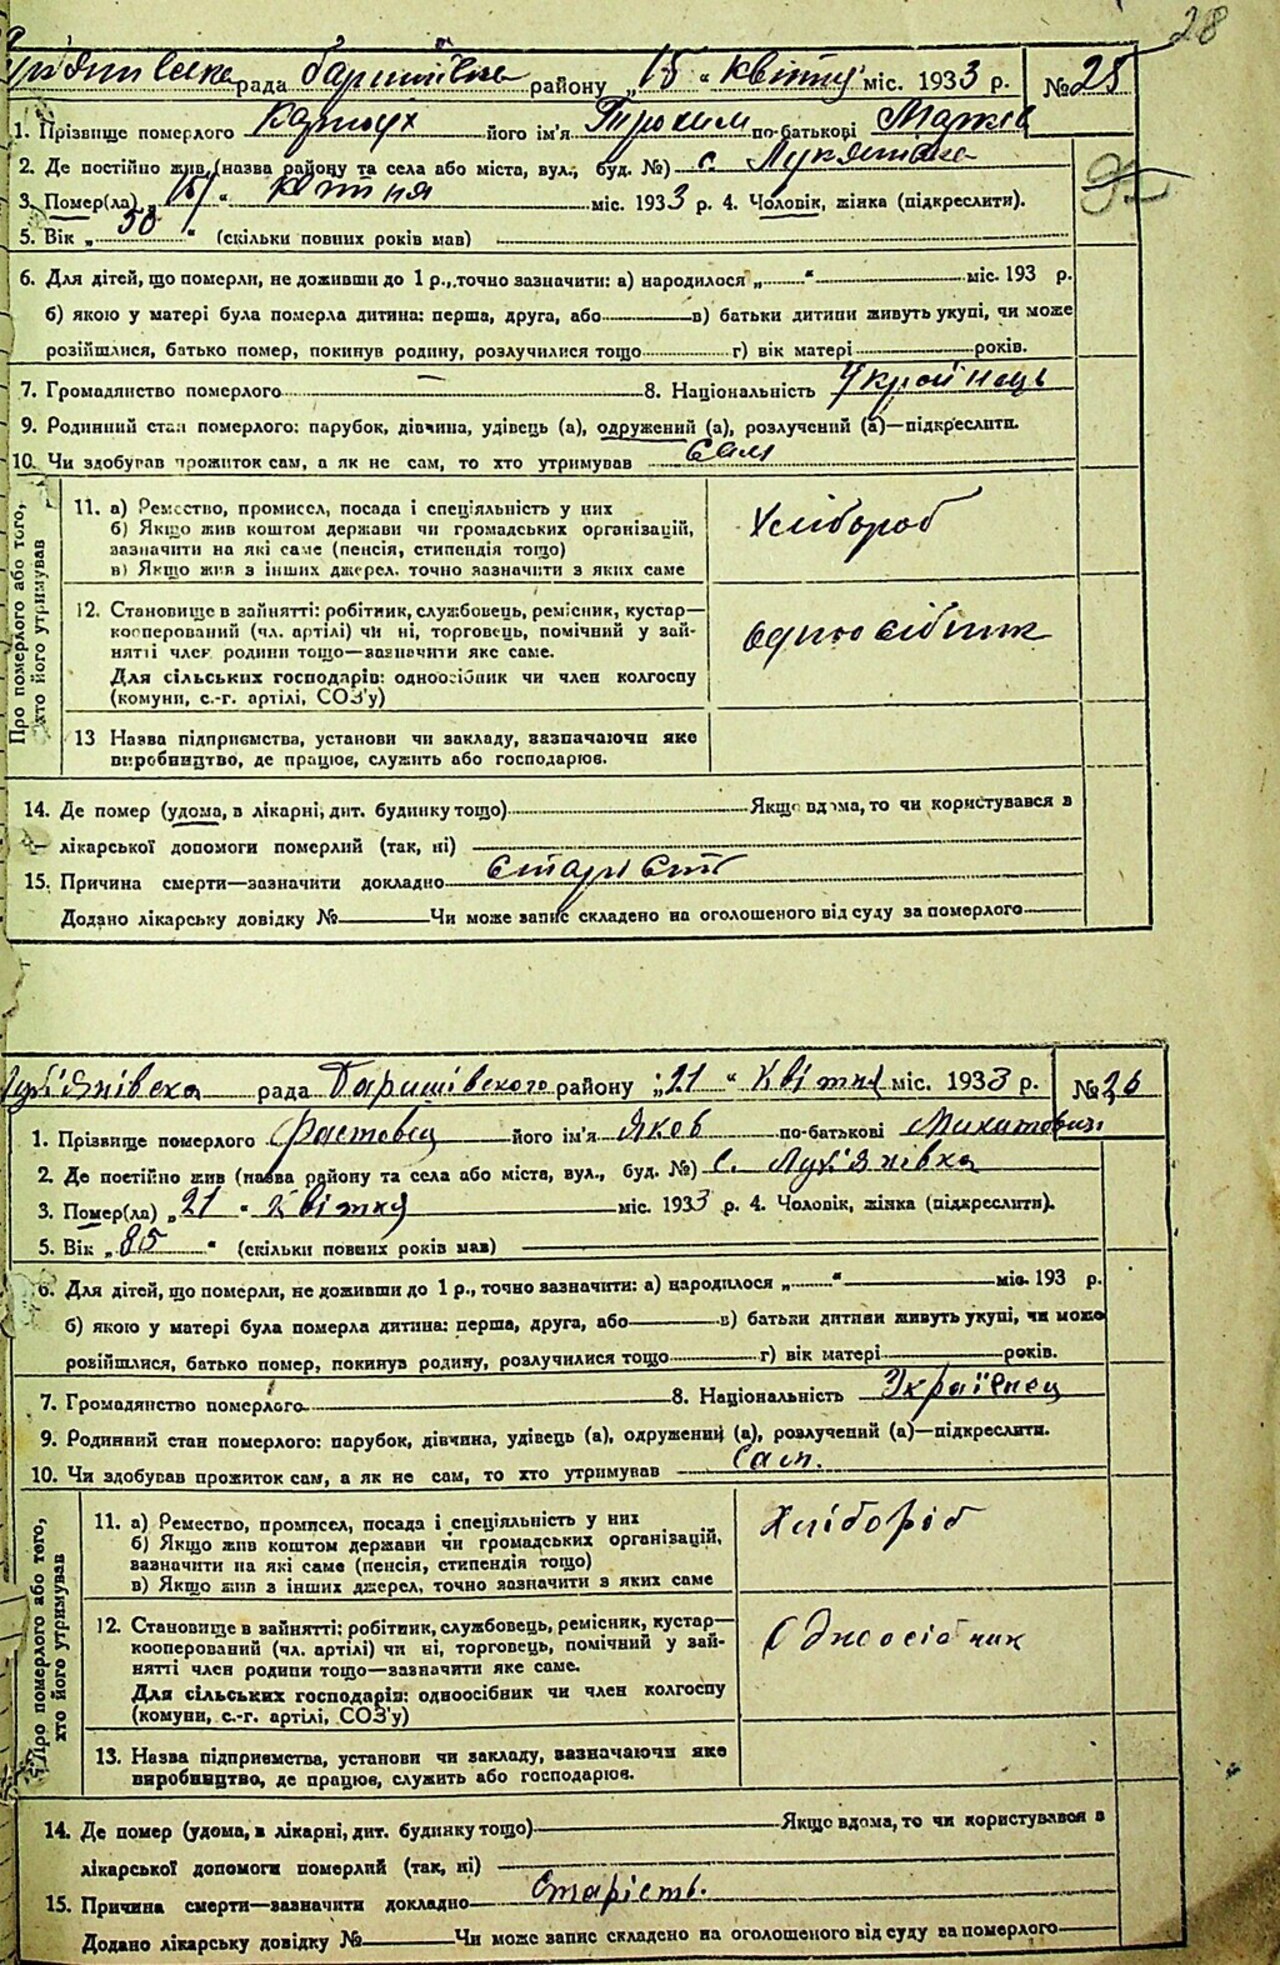 28
рада району „15 “ Квітня міс. 1933 р. № 25
1. Прізвище померлого його ім'я Трохим по-батькові Марків
2. Де постійно жив (назва району та села або міста, вул., буд. №) с.
3. Помер(ла) „15 “ міс. 1933 р. 4. Чоловік, жінка (підкреслити).
5. Вік „50“ (скільки повних років мав)
6. Для дітей, що померли, не доживши до 1 р., точно зазначити: а) народилося „ “ міс. 193 р.
б) якою у матері була померла дитина: перша, друга, або в) батьки дитини живуть укупі, чи може
розійшлися, батько помер, покинув родину, розлучилися тощо г) вік матері років.
7. Громадянство померлого — 8. Національність Україінець
9. Родинний стан померлого: парубок, дівчина, удівець (а), одружений (а), розлучений (а)—підкреслити.
10. Чи здобував прожиток сам, а як не сам, то хто утримував сам
Про померлого або того, хто його утримував
11. а) Ремество, промисел, посада і спеціяльність у них
б) Якщо жив коштом держави чи громадських організацій,
зазначити на які саме (пенсія, стипендія тощо)
в) Якщо жив з інших джерел, точно зазначити з яких саме
хлібороб
12. Становище в зайнятті: робітник, службовець, ремісник, кустар—
кооперований (чл. артілі) чи ні, торговець, помічний у зай-
нятті член родини тощо—зазначити яке саме.
Для сільських господарів: одноосібник чи член колгоспу
(комуни, с.-г. артілі, СОЗ'у)
одноосібник
13 Назва підприємства, установи чи закладу, зазначаючи яке
виробництво, де працює, служить або господарює.
14. Де помер (удома, в лікарні, дит. будинку тощо) Якщо вдома, то чи користувався в
лікарської допомоги померлий (так, ні)
15. Причина смерти—зазначити докладно старість
Додано лікарську довідку № Чи може запис складено на оголошеного від суду за померлого
Лук'янівська рада Баришівського району „21 “ Квітня міс. 1933 р. № 26
1. Прізвище померлого Фастовец його ім'я Яков по-батькові
2. Де постійно жив (назва району та села або міста, вул., буд. №) с. Лук'янівка
3. Помер(ла) „21 “ Квітня міс. 1933 р. 4. Чоловік, жінка (підкреслити).
5. Вік „85 “ (скільки повних років мав)
6. Для дітей, що померли, не доживши до 1 р., точно зазначити: а) народилося „ “ міс. 193 р.
б) якою у матері була померла дитина: перша, друга, або в) батьки дитини живуть укупі, чи може
розійшлися, батько помер, покинув родину, розлучилися тощо г) вік матері років.
7. Громадянство померлого 8. Національність Українец
9. Родинний стан померлого: парубок, дівчина, удівець (а), одружений (а), розлучений (а)—підкреслити.
10. Чи здобував прожиток сам, а як не сам, то хто утримував Сам.
Про померлого або того, хто його утримував
11. а) Ремество, промисел, посада і спеціяльність у них
б) Якщо жив коштом держави чи громадських організацій,
зазначити на які саме (пенсія, стипендія тощо)
в) Якщо жив з інших джерел, точно зазначити з яких саме
Хлібороб
12. Становище в зайнятті: робітник, службовець, ремісник, кустар—
кооперований (чл. артілі) чи ні, торговець, помічний у зай-
нятті член родини тощо—зазначити яке саме.
Для сільських господарів: одноосібник чи член колгоспу
(комуни, с.-г. артілі, СОЗ'у)
Одноосібник
13. Назва підприємства, установи чи закладу, зазначаючи яке
виробництво, де працює, служить або господарює.
14. Де помер (удома, в лікарні, дит. будинку тощо) Якщо вдома, то чи користувався в
лікарської допомоги померлий (так, ні)
15. Причина смерти—зазначити докладно Старість.
Додано лікарську довідку № Чи може запис складено на оголошеного від суду за померлого